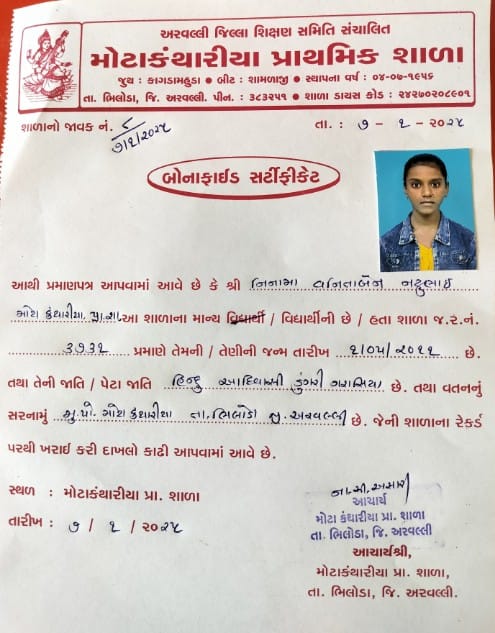 અરવલ્લી જિલ્લા શિક્ષણ સમિતિ સંચાલિત
મોટાકંથારીયા પ્રાથમિક શાળા
જુથ : કાગડામહુડા • બીટ : શામળાજી • સ્થાપના વર્ષ : ૦૪-૦૭-૧૯૫૬
તા. ભિલોડા, જિ. અરવલ્લી. પીન. : ૩૮૩૨૫૧ • શાળા ડાયસ કોડ : ૨૪૨૭૦૨૦૮૯૦૧
શાળાનો જાવક નં. ૮ તા. : ૭ - ૨ - ૨૦૨૪
૭/૨/૨૦૨૪
બોનાફાઈડ સર્ટીફીકેટ
આથી પ્રમાણપત્ર આપવામાં આવે છે કે શ્રી નિનામા વનિતાબેન નટુભાઇ
મોટા કંથારીયા પ્રા.શા. આ શાળાના માન્ય વિદ્યાર્થી / વિદ્યાર્થીની છે / હતા શાળા જ.ર.નં.
૩૭૩૨ પ્રમાણે તેમની / તેણીની જન્મ તારીખ ૨/૦૫/૨૦૧૧ છે.
તથા તેની જાતિ / પેટા જાતિ હિન્દુ આદિવાસી ડુંગરી ગરાસિયા છે. તથા વતનનું
સરનામું મુ.પો. મોટા કંથારીયા તા. ભિલોડા જી. અરવલ્લી છે. જેની શાળાના રેકર્ડ
પરથી ખરાઈ કરી દાખલો કાઢી આપવામાં આવે છે.
સ્થળ : મોટાકંથારીયા પ્રા. શાળા
તારીખ : ૭ / ૨ / ૨૦૨૪
આચાર્ય
મોટા કંથારીયા પ્રા. શાળા
તા. ભિલોડા, જિ. અરવલ્લી
આચાર્યશ્રી,
મોટાકંથારીયા પ્રા. શાળા,
તા. ભિલોડા, જિ. અરવલ્લી.